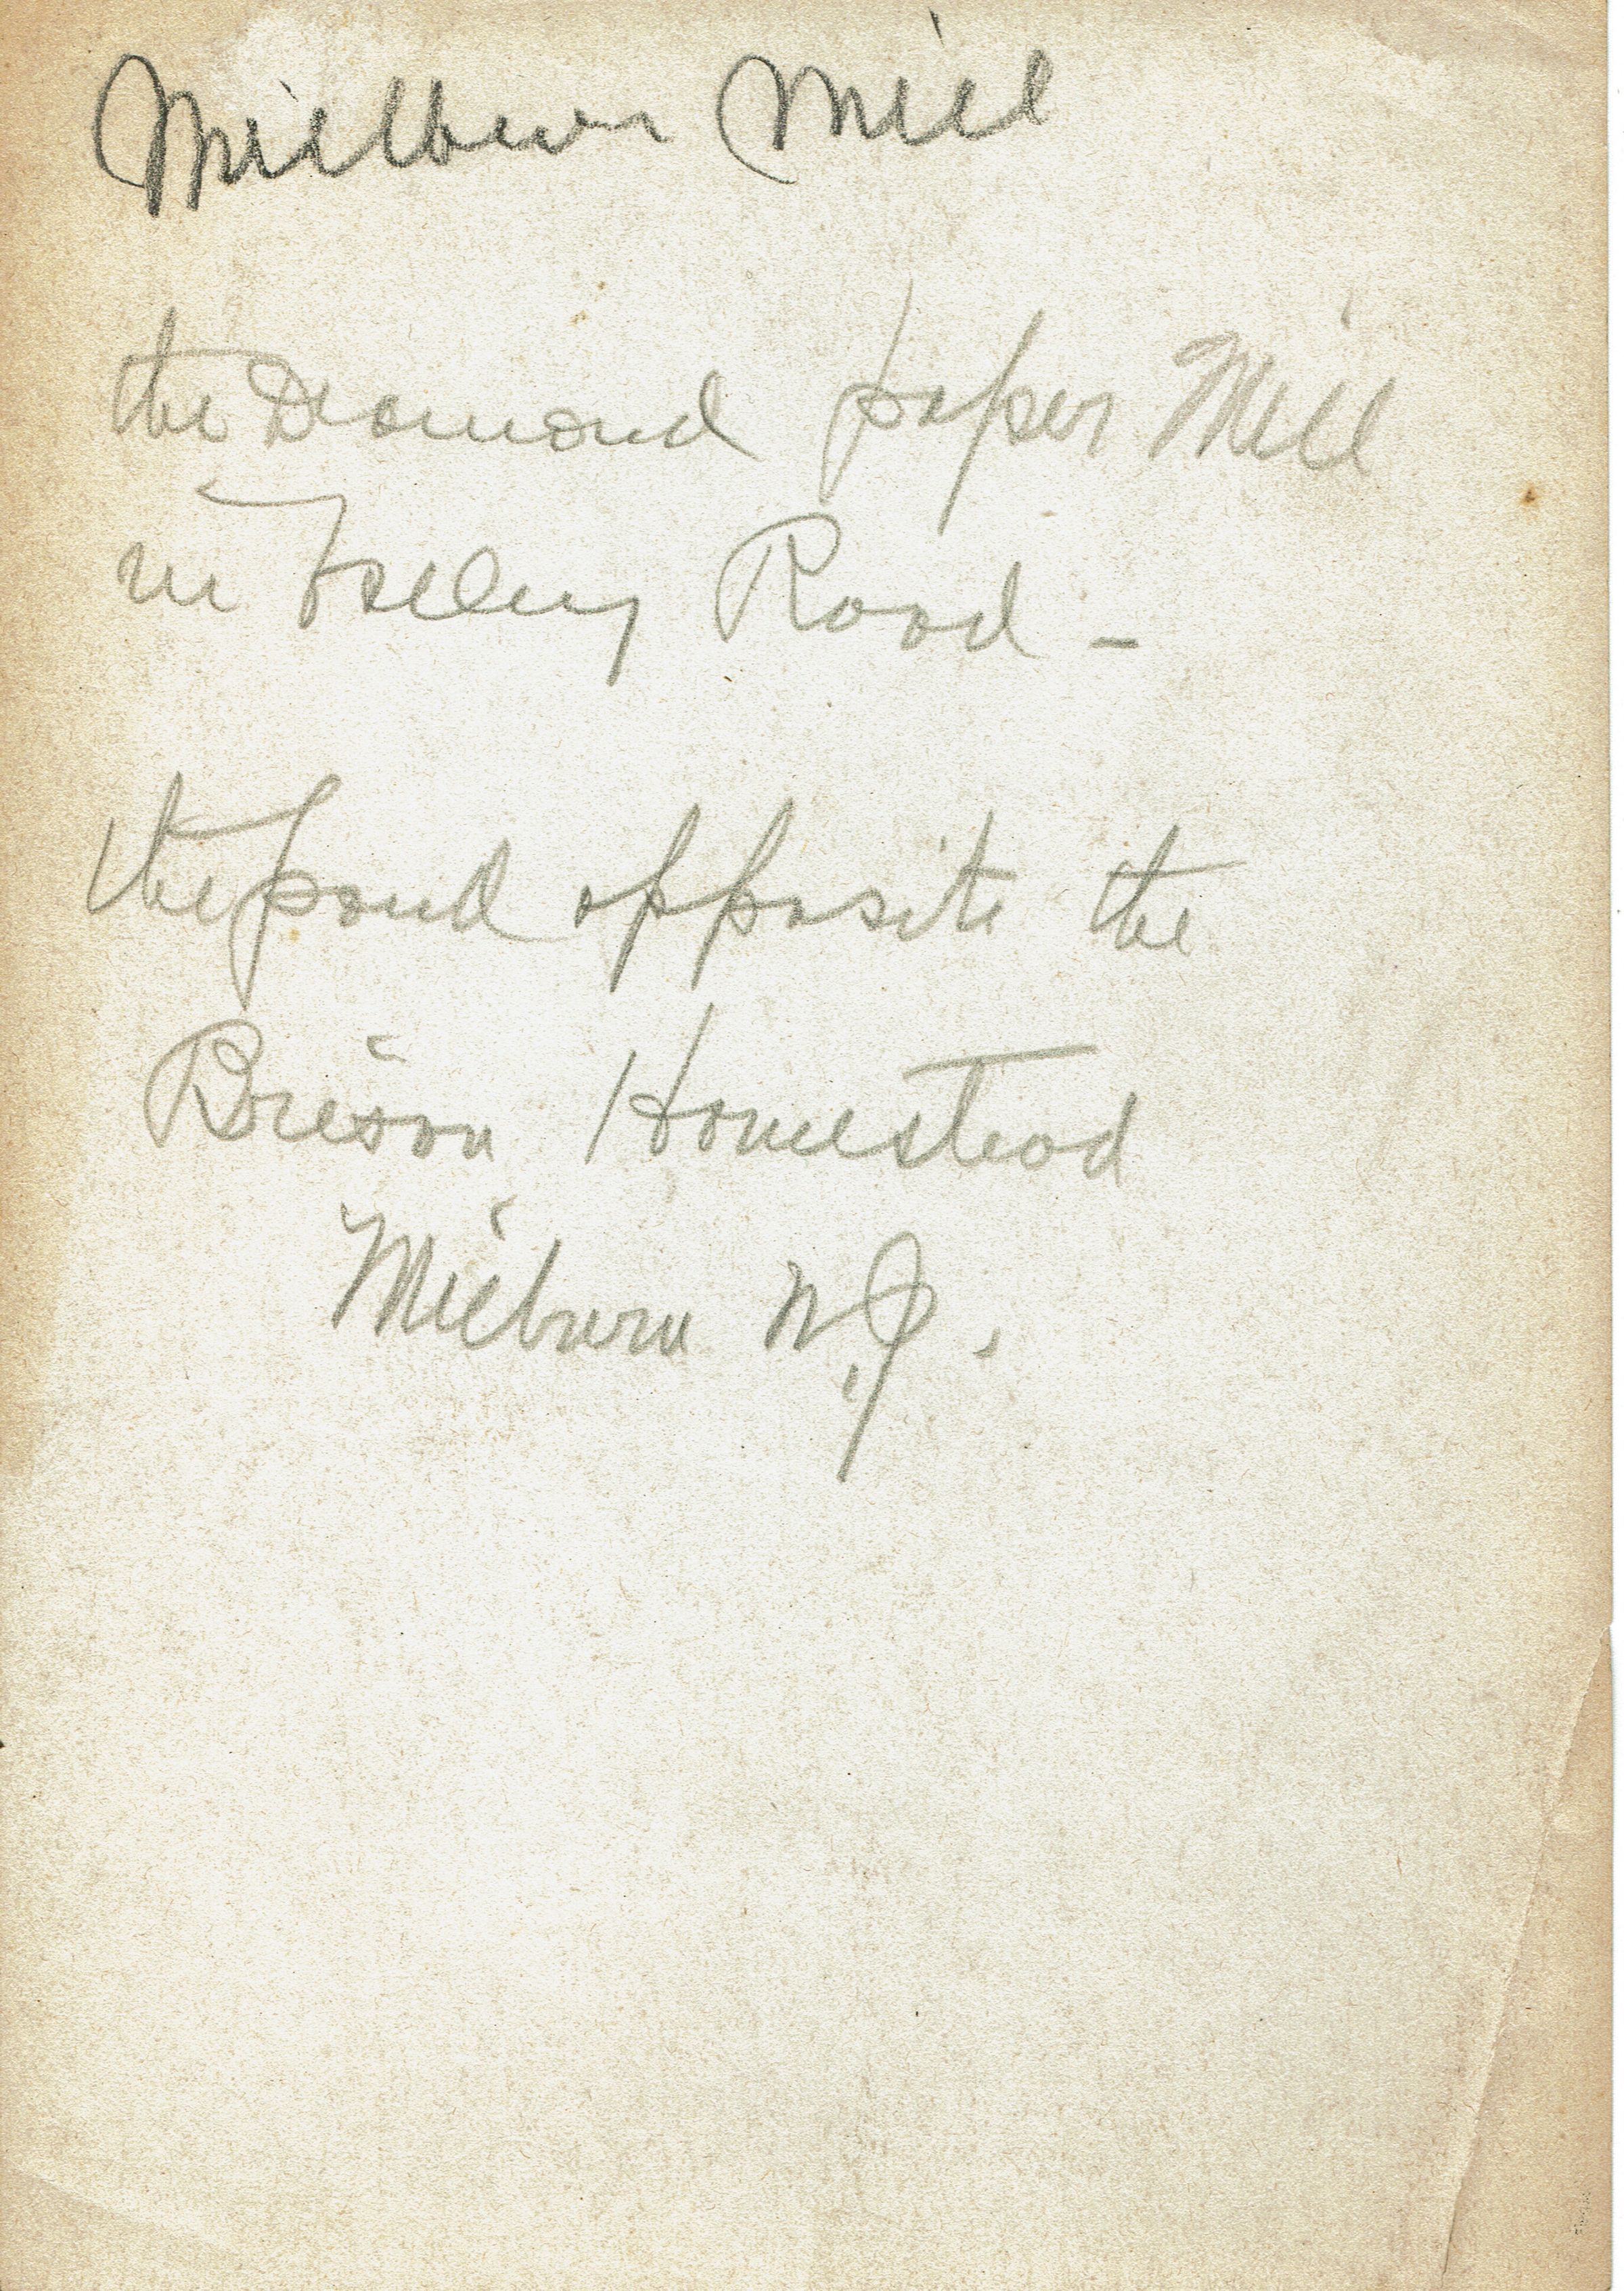 Millburn Mill
the Diamond paper Mill
in Road -
the pond opposite the
Homestead
Milburn N.J.